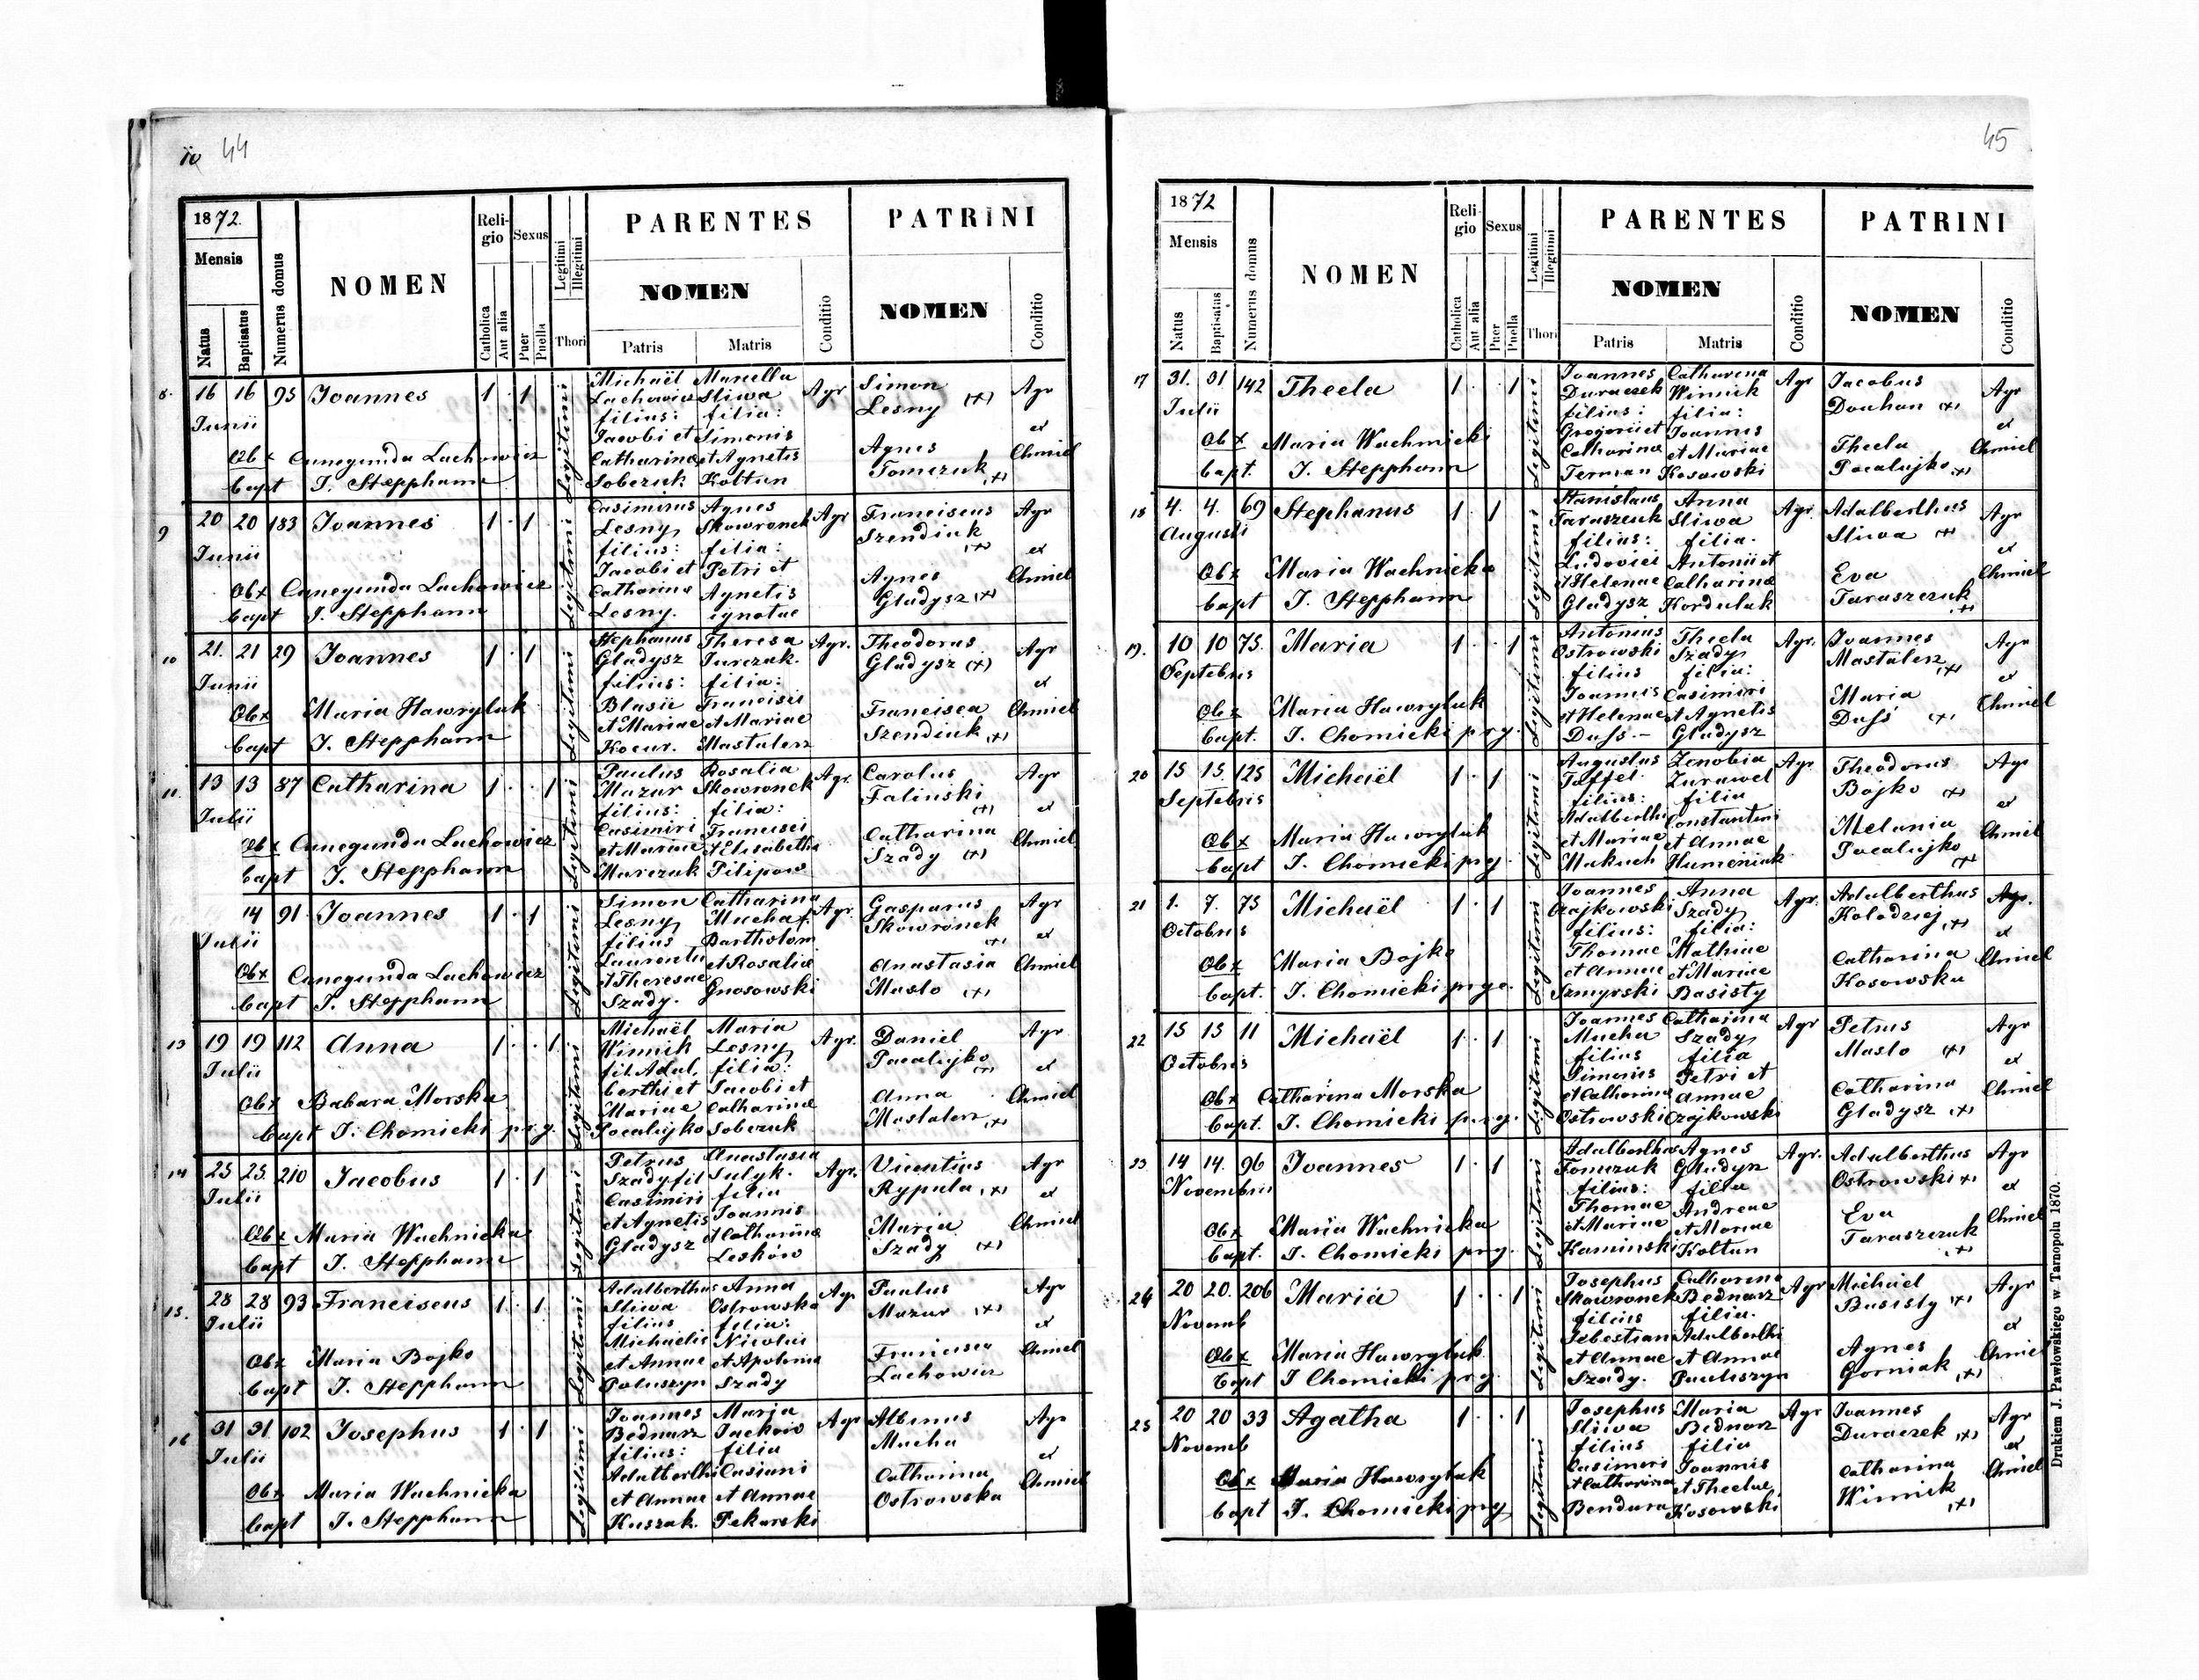 44
1872.
Mensis
Natus
Baptisatus
Numerus domus
NOMEN
Religio
Catholica
Aut alia
Sexus
Puer
Puella
Legitimi
Illegitimi
Thori
PARENTES
NOMEN
Patris
Matris
Conditio
PATRINI
NOMEN
Conditio
8. 16 16 95 Joannes 1 · 1 Legitimi
Junii
Obx Cunegunda Lachowicz
bapt J. Stepphann
Michaël
Lachowicz
filius:
Jacobi et
Catharinae
Sobczuk
Sliwa
filia:
Simonis
et Agnetis
Koltun
Agr
Simon
Lesny (+)
Agnes
Tomczuk (+)
Agr
et
Chmiel
9 20 20 183 Joannes 1 · 1 Legitimi
Junii
Obx Cunegunda Lachowicz
bapt J. Stepphann
Casimirus
Lesny
filius:
Jacobi et
Catharina
Lesny.
Agnes
Skowronek
filia:
Petri et
Agnetis
ignotae
Agr
Franciscus
Szendiuk (+)
Agnes
Gladysz (+)
Agr
et
Chmiel
10 21. 21 29 Joannes 1 · 1 Legitimi
Junii
Obx Maria Hawryluk
bapt J. Stepphann
Stephanus
Gladysz
filius:
Blasii
et Mariae
Kocur.
Theresa
Jurczak.
filia:
Francisci
et Mariae
Mastalerz
Agr.
Theodorus
Gladysz (+)
Francisca
Szendiuk (+)
Agr
et
Chmiel
11. 13 13 87 Catharina 1 · · 1 Legitimi
Julii
Obx Cunegunda Lachowicz
bapt J. Stepphann
Paulus
Mazur
filius:
Casimiri
et Mariae
Marczuk
Rosalia
Skowronek
filia:
Francisci
et Elisabetha
Filipow
Agr.
Carolus
Falinski (+)
Catharina
Szady (+)
Agr
et
Chmiel
14 91 Joannes 1 · 1 Legitimi
Julii
Obx Cunegunda Lachowicz
bapt J. Stepphann
Simon
Lesny
filius
Laurentii
et Theresae
Szady.
Catharina
Mucha f.
Bartholom
et Rosaliae
Gnosowski
Agr
Gasparus
Skowronek (+)
Anastasia
Maslo (+)
Agr
et
Chmiel
13 19 19 112 Anna 1 · · 1 Legitimi
Julii
Obx Babara Morska
bapt J. Chomicki prg.
Michaël
Winnik
fil. Adal,
berthi et
Mariae
Pocalujko
Maria
Lesny
filia:
Jacobi et
Catharinae
Sobczuk
Agr.
Daniel
Pocalujko (+)
Anna
Mastalerz (+)
Agr
et
Chmiel
14 25 25. 210 Jacobus 1 · 1 Legitimi
Julii
Obx Maria Wachnicka
bapt J. Stepphann
Petrus
Szady fil
Casimiri
et Agnetis
Gladysz
Anastasia
Sulyk.
filia
Joannis
et Catharinae
Leskow
Agr.
Vicentius
Rypula (+)
Maria
Szady (+)
Agr
et
Chmiel
15. 28 28 93 Franciscus 1 · 1 Legitimi
Julii
Obx Maria Bojko
bapt J. Stepphann
Adalberthus
Sliwa
filius
Michaelis
et Annae
Poluszyn
Anna
Ostrowska
filia:
Nicolai
et Apolonia
Szady
Agr
Paulus
Mazur (+)
Francisca
Lachowicz
Agr
et
Chmiel
16 31 31 102 Josephus 1 · 1 Legitimi
Julii
Obx Maria Wachnicka
bapt J. Stepphann
Joannes
Bednarz
filius:
Adalberthi
et Annae
Kuszak.
Marja
Jackow
filia
Casiani
et Annae
Pekarski
Agr
Albinus
Mucha
Catharina
Ostrowska
Agr
et
Chmiel
45
1872
Mensis
Natus
Baptisatus
Numerus domus
NOMEN
Religio
Catholica
Aut alia
Sexus
Puer
Puella
Legitimi
Illegitimi
Thori
PARENTES
NOMEN
Patris
Matris
Conditio
PATRINI
NOMEN
Conditio
17 31. 31 142 Thecla 1 · · 1 Legitimi
Julii
Obx Maria Wachnicki
bapt. J. Stepphann
Joannes
Duraczek
filius:
Gregorii et
Catharina
Terman
Catharena
Winnik
filia:
Joannis
et Mariae
Kosowski
Agr
Jacobus
Douhan (+)
Thecla
Pocalujko (+)
Agr
et
Chmiel
18 4. 4. 69 Stephanus 1 · 1 Legitimi
Augusti
Obx Maria Wachnicka
bapt J. Stepphann
Stanislaus
Taraszczuk
filius:
Ludovici
et Helenae
Gladysz
Anna
Sliwa
filia.
Antonii et
Catharinae
Kordulak
Agr.
Adalberthus
Sliwa (+)
Eva
Taraszczuk (+)
Agr
et
Chmiel
19. 10 10 75. Maria 1 · · 1 Legitimi
Septebris
Obx Maria Hawryluk
bapt. J. Chomicki prg.
Antonius
Ostrowski
filius
Joannis
et Helenae
Duss.-
Thecla
Szady
filia:
Casimiri
et Agnetis
Gladysz
Agr.
Joannes
Mastalerz (+)
Maria
Duss (+)
Agr
et
Chmiel
20 15 15. 125 Michaël 1 · 1 Legitimi
Septebris
Obx Maria Hawryluk
bapt J. Chomicki prg.
Augustus
Toffel
filius:
Adalberthi
et Mariae
Makuch
Zenobia
Zurawel
filia
Constantini
et Annae
Humeniuk
Agr
Theodorus
Bojko (+)
Melania
Pocalujko (+)
Agr
et
Chmiel
21 1. 7. 75 Michaël 1 · 1 Legitimi
Octobris
Obx Maria Bojko
bapt. J. Chomicki prg.
Joannes
Czajkowski
filius:
Thomae
et Annae
Szmyrski
Anna
Szady
filia:
Mathiae
et Mariae
Basisty
Agr.
Adalberthus
Kolodziej (+)
Catharina
Kosowska
Agr.
et
Chmiel
22 15 15 11 Michaël 1 · 1 Legitimi
Octobris
Obx Catharina Morska
bapt. J. Chomicki prg.
Joannes
Mucha
filius
Simonis
et Catharina
Ostrowski
Catharina
Szady
filia
Petri et
Annae
Czajkowski
Agr
Petrus
Maslo (+)
Catharina
Gladysz (+)
Agr
et
Chmiel
23 14 14. 96 Joannes 1 · 1 Legitimi
Novembris
Obx Maria Wachnicka
bapt. J. Chomicki prg.
Adalberthus
Tomczuk
filius:
Thomae
et Mariae
Kaminski
Agnes
Gladysz
filia
Andreae
et Mariae
Koltun
Agr.
Adalberthus
Ostrowski (+)
Eva
Taraszczuk (+)
Agr
et
Chmiel
24 20 20. 206 Maria 1 · · 1 Legitimi
Novemb
Obx Maria Hawryluk
bapt J Chomicki prg.
Josephus
Skowronek
filius
Sebestian
et Annae
Szady.
Catharina
Bednarz
filia.
Adalberthi
et Annae
Pauliszyn
Agr
Michael
Basisty (+)
Agnes
Gorniak (+)
Agr
et
Chmiel
25 20 20 33 Agatha 1 · · 1 Legitimi
Novemb
Obx Maria Hawryluk
bapt J. Chomicki prg
Josephus
Sliwa
filius
Casimiri
et Catharina
Bendura
Maria
Bednarz
filia
Joannis
et Theclae
Kosowski
Agr
Joannes
Duraczek (+)
Catharina
Winnik (+)
Agr
et
Chmiel
Drukiem J. Pawłowskiego w Tarnopolu 1870.